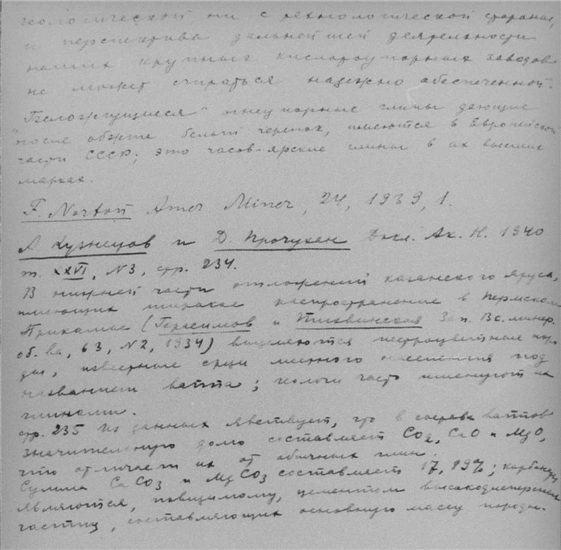 геологической ни с технологической стороны,
и перспектива дальнейшей деятельности
наших крупных кислотоупорных заводов
не может считаться надежно обеспеченной.
"Беложгущиеся" огнеупорные глины, дающие
после обжига белый черепок, имеются в Европейской
части СССР; это часов-ярские глины в их высших
марках.
F. Norton Amer Miner, 24, 1939, 1.
А Кузнецов и Д. Прочухан Докл. Ак. Н. 1940
т. XXVI, N3, стр. 234.
В нижней части отложений казанского яруса,
имеющих широкое распространение в Пермском
Прикамье (Герасимов и Зап. Вс. минер.
об-ва, 63, N2, 1934) выделяются пестроцветные поро-
ды, известные среди местного населения под
названием ваппа; геологи часто именуют их
глинами.
стр. 235 Из данных явствует, что в составе ваппов
значительную долю составляет CO2, CaO и MgO,
что отличает их от обычных глин.
Сумма CaCO3 и MgCO3 составляет 17,19%; карбонаты
являются, повидимому, цементом высокодисперсных
частиц, составляющих основную массу породы.